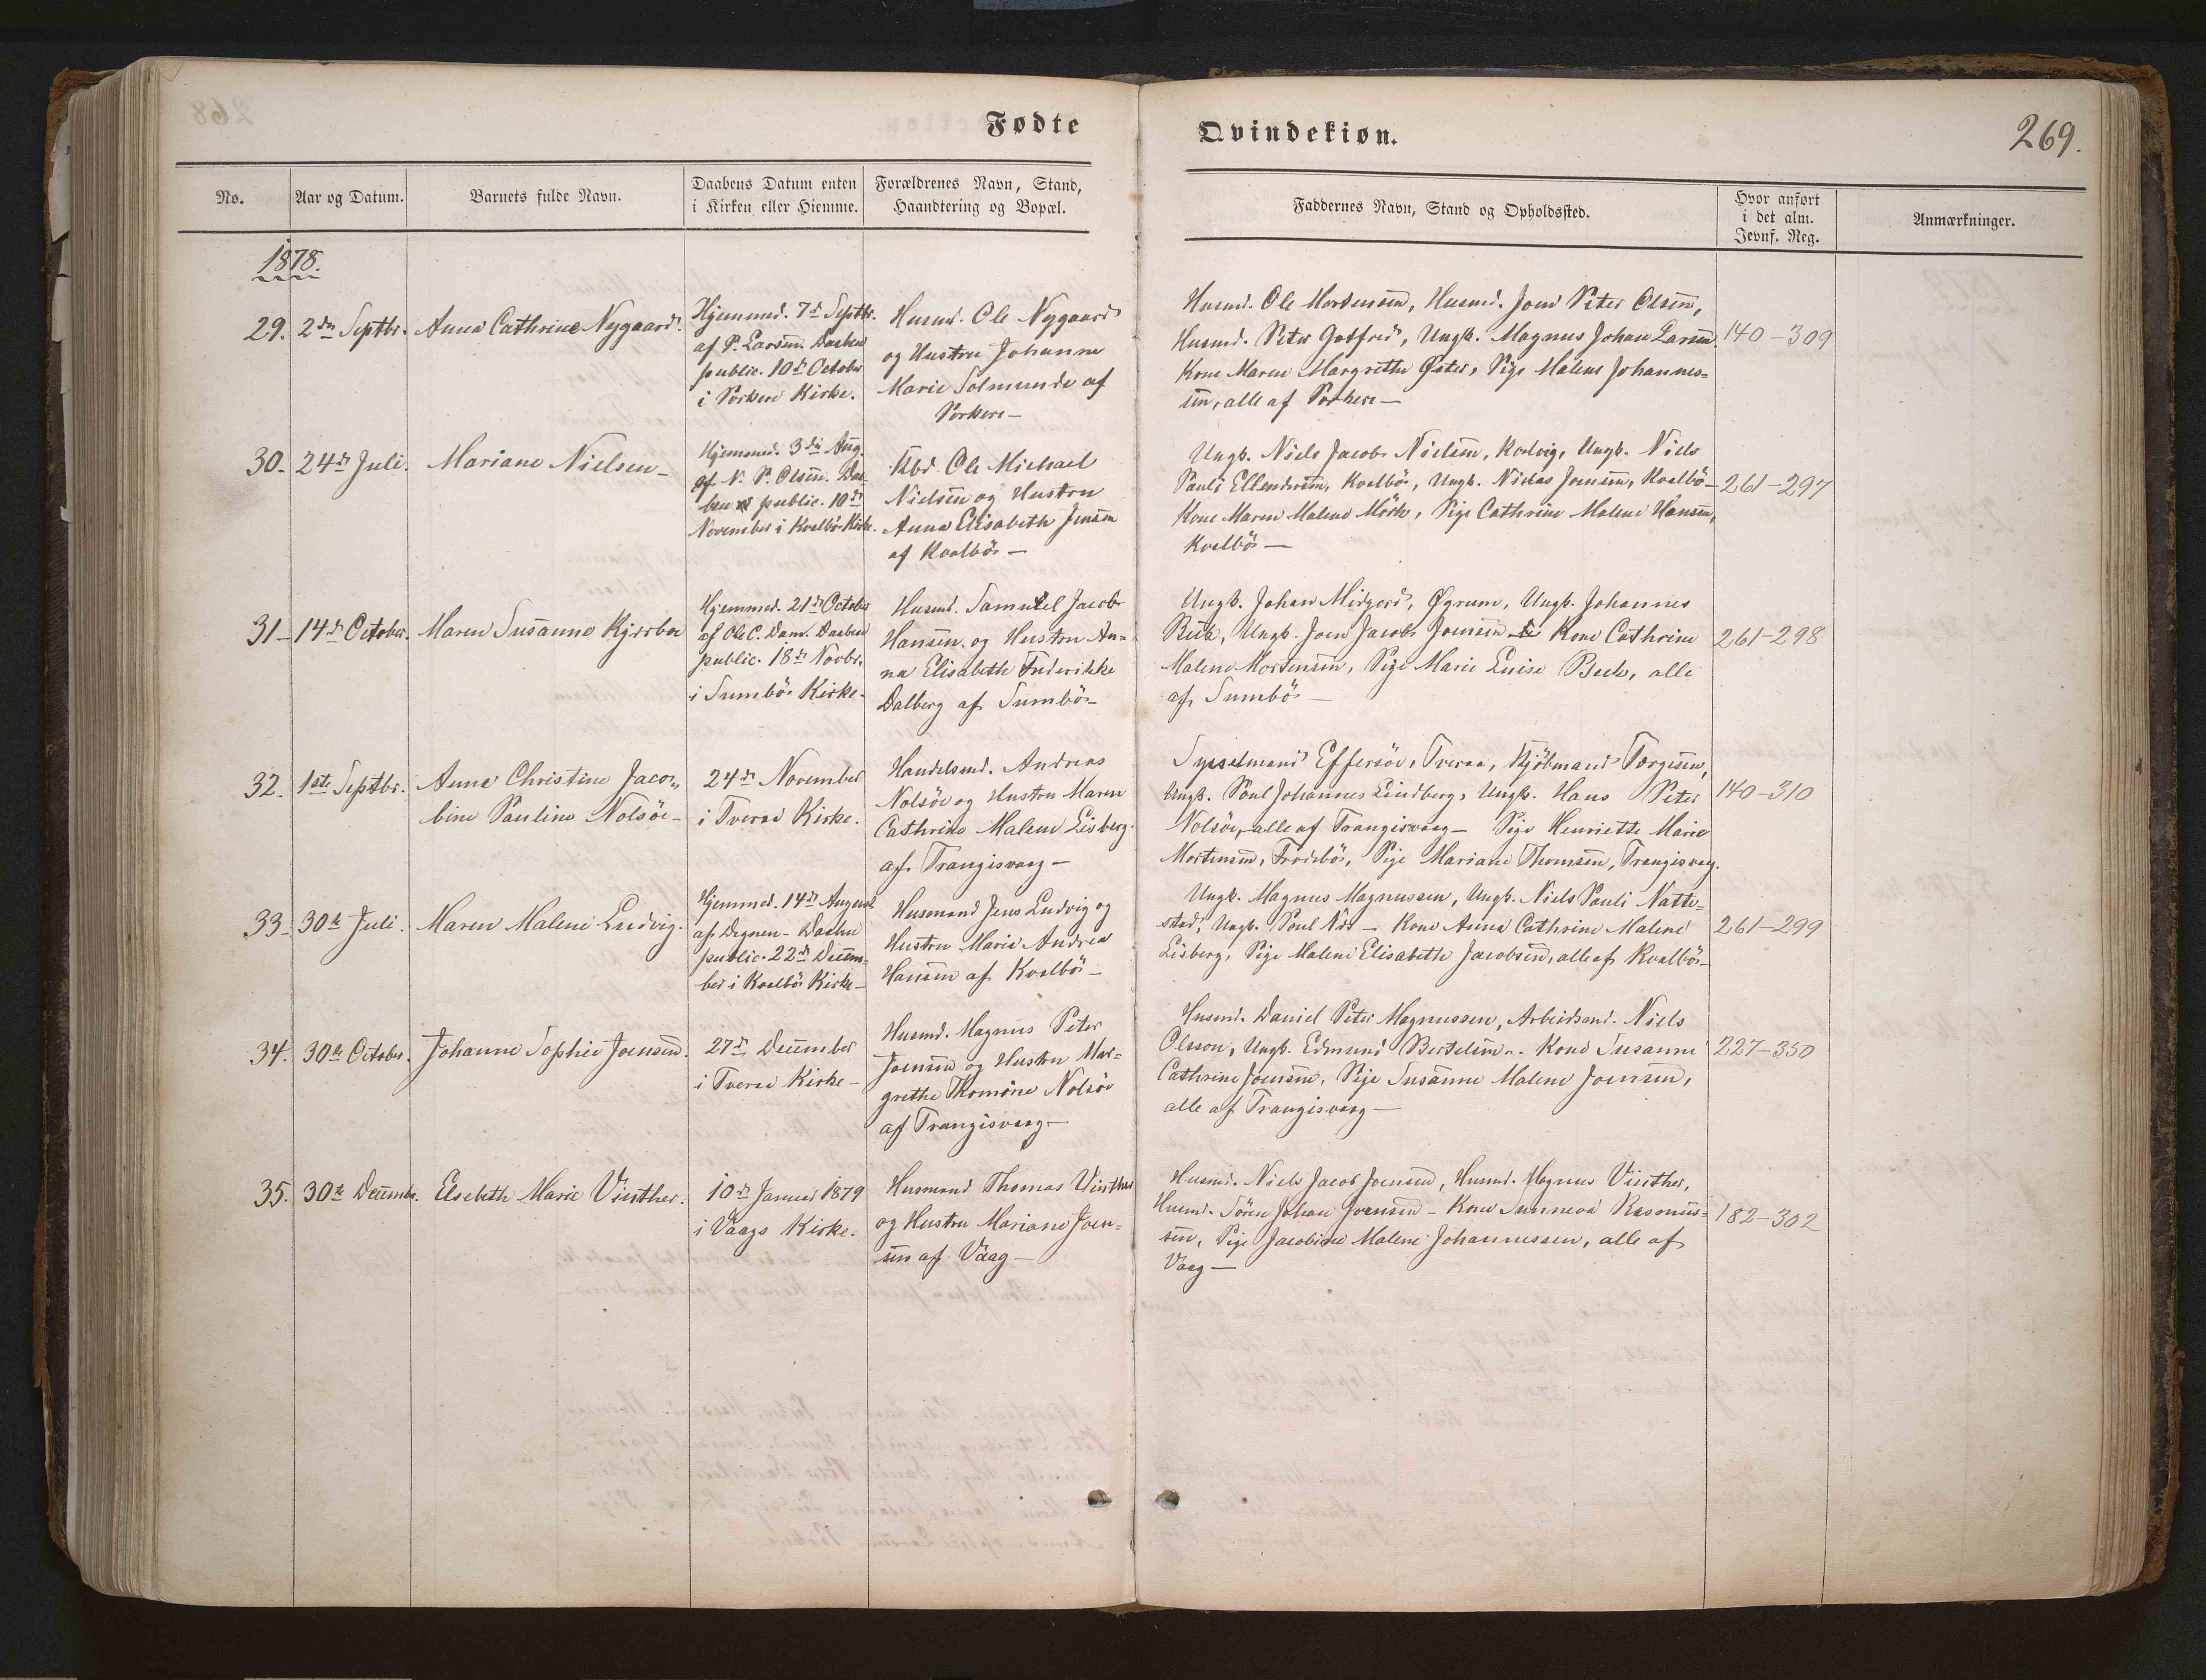 Fødte
Qvindekiøn.
269.
No.
Aar og Datum.
Barnets fulde Navn.
Daabens Datum enten
i Kirken eller Hiemme.
Forældrenes Navn, Stand,
Haandtering og Bopæl.
Faddernes Navn, Stand og Opholdssted.
Hvor anført
i det alm.
Jevnf. Reg.
Anmærkninger.
1878.
29.
2den Septbr.
Anna Cathrine Nygaard.
Hjemmed. 7de Septbr.
af P. Larsen. Daaben
public. 10de October
i Porkere Kirke.
Husmd. Ole Nygaard
og Hustru Johanne
Marie Solmunde af
Porkere —
Husmd. Ole Mortensen, Husmd. Joen Peter Olsen,
Husmd. Peter Gotfred, Ungk. Magnus Johan Larsen
Kone Maren Margrethe Øster, Pige Malene Johannes=
sen, alle af Porkere —
140-309
30.
24de Juli.
Mariane Nielsen —
Hjemmed. 3die Aug.
af N. P. Olsen. Daa-
ben public. 10de
November i Kvalbö Kirke.
Kbd. Ole Michael
Nielsen og Hustru
Anna Elisabeth Jensen
af Kvalbö —
Ungk. Niels Jacob Nielsen, Ungk. Niels
Pauli Ellendersen, Kvalbö, Ungk. Niclas Joensen, Kvalbö —
Kone Maren Malene Mörk, Pige Cathrine Malene Hansen,
Kvalbö —
261-297
31 —
14de October.
Maren Susanne Kjærbo
Hjemmed. 21de October
af Ole C. Dam. Daaben
public. 18de Novbr.
i Sumbö Kirke.
Husmd. Samuel Jacob
Hansen og Hustru An=
na Elisabeth Frederikke
Dalberg af Sumbö —
Ungk. Johan Midgord, Øgrum, Ungk. Johannes
Beck, Ungk. Joen Jacob Joensen — Kone Cathrine
Malene Mortensen, Pige Marie Luise Beck, alle
af Sumbö —
261-298
32.
1ste Septbr.
Anna Christine Jaco=
bine Pauline Nolsöe —
24de November
i Tveraa Kirke.
Handelsmd. Andreas
Nolsöe og Hustru Maren
Cathrine Malene Lisberg
af Trangisvaag —
Sysselmand Effersöe, Tveraa, Kjöbmand Torgesen,
Ungk. Poul Johannes Lindberg, Ungk. Hans Peter
Nolsöe, alle af Trangisvaag — Pige Henriette Marie
Mortensen, Frodebö, Pige Mariane Thomsen, Trangisvaag.
140-310
33 —
30te Juli.
Maren Malene Ludvig.
Hjemmed. 14de August
af Degnen — Daaben
public. 22de Decem=
ber i Kvalbö Kirke —
Husmand Jens Ludvig og
Hustru Marie Andrea
Hansen af Kvalbö —
Ungk. Magnus Magnussen, Ungk. Niels Pauli Natte=
stad, Ungk. Poul — Kone Anna Cathrine Malene
Lisberg, Pige Malene Elisabeth Jacobsen, alle af Kvalbö —
261-299
34.
30te October.
Johanne Sophie Joensen.
27de December
i Tveraa Kirke —
Husmd. Magnus Peter
Joensen og Hustru Mar=
grethe Thomine Nolsöe
af Trangisvaag —
Husmd. Daniel Peter Magnussen, Arbeidsmd. Niels
Olsson, Ungk. Edmund Bertelsen. Kone Susanne
Cathrine Joensen, Pige Susanne Malene Joensen,
alle af Trangisvaag —
227-350
35.
30te Decembr.
Elsebeth Marie Vinther.
10de Januar 1879
i Vaags Kirke.
Husmand Thomas Vinther
og Hustru Mariane Joen=
sen af Vaag —
Husmd. Niels Jacob Joensen, Husmd. Magnus Vinther,
Husmd. Sören Johan Joensen — Kone Sunneva Rasmus=
sen, Pige Jacobine Malene Johannessen, alle af
Vaag —
182-302